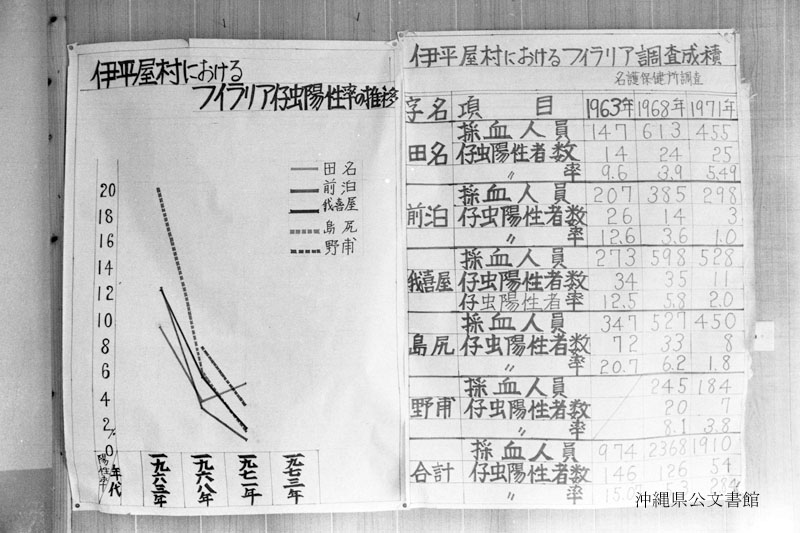 伊平屋村における
フイラリア仔虫陽性率の推移
田名
前泊
我喜屋
島尻
野甫
20
18
16
14
12
10
8
6
4
2%
0
陽性率
年代
一九六三年
一九六八年
一九七一年
一九七三年
伊平屋村におけるフイラリア調査成積
名護保健所調査
字名 項目 1963年 1968年 1971年
田名 採血人員 147 613 455
仔虫陽性者数 14 24 25
〃 率 9.6 3.9 5.49
前泊 採血人員 207 385 298
仔虫陽性者数 26 14 3
〃 率 12.6 3.6 1.0
我喜屋 採血人員 273 598 528
仔虫陽性者数 34 35 11
仔虫陽性者率 12.5 5.8 2.0
島尻 採血人員 347 527 450
仔虫陽性者数 72 33 8
〃 率 20.7 6.2 1.8
野甫 採血人員 245 184
仔虫陽性者数 20 7
〃 率 8.1 3.8
合計 採血人員 974 2368 1910
仔虫陽性者数 146 126 54
〃 率 5.3
沖縄県公文書館